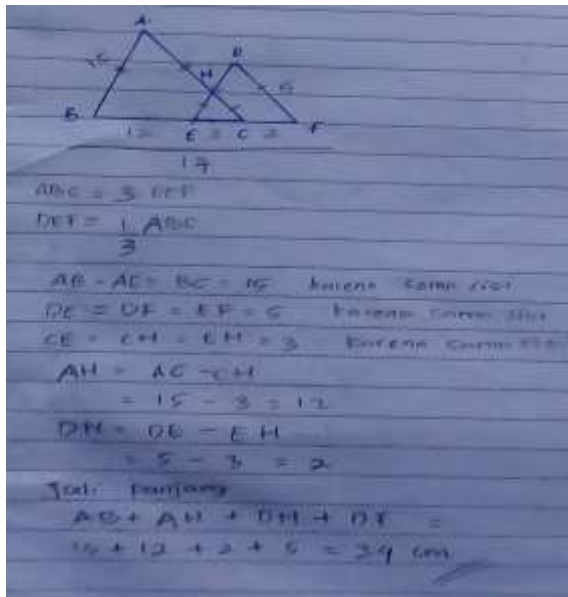 A
15
H
D
5
B
12 E 3 C 2 F
17
ABC = 3 DEF
DEF = 1 ABC
3
AB = AC = BC = 15 karena sama sisi
DE = DF = EF = 5 karena sama sisi
CE = CH = EH = 3 karena sama sisi
AH = AC - CH
= 15 - 3 = 12
DH = DE - EH
= 5 - 3 = 2
Jadi Panjang
AB + AH + DH + DF =
15 + 12 + 2 + 5 = 34 cm